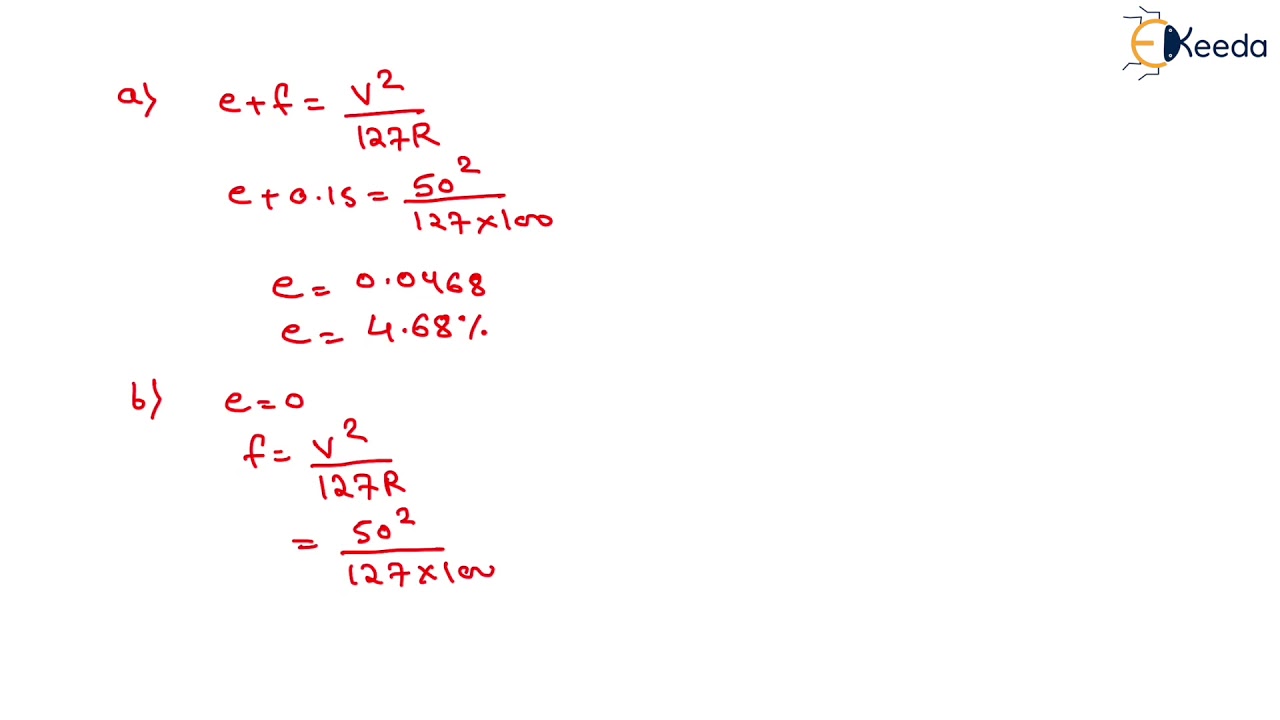 EKeeda
a) e + f = V² / 127R
e + 0.15 = 50² / 127 × 100
e = 0.0468
e = 4.68%
b) e = 0
f = V² / 127R
= 50² / 127 × 100